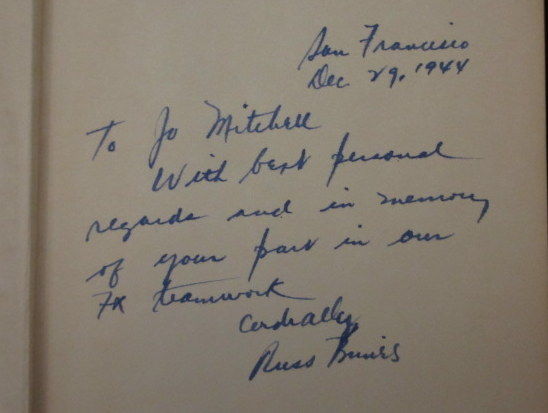 San Francisco
Dec 29, 1944
To Jo Mitchell
With best personal
regards and in memory
of your part in our
teamwork
Cordially
Russ